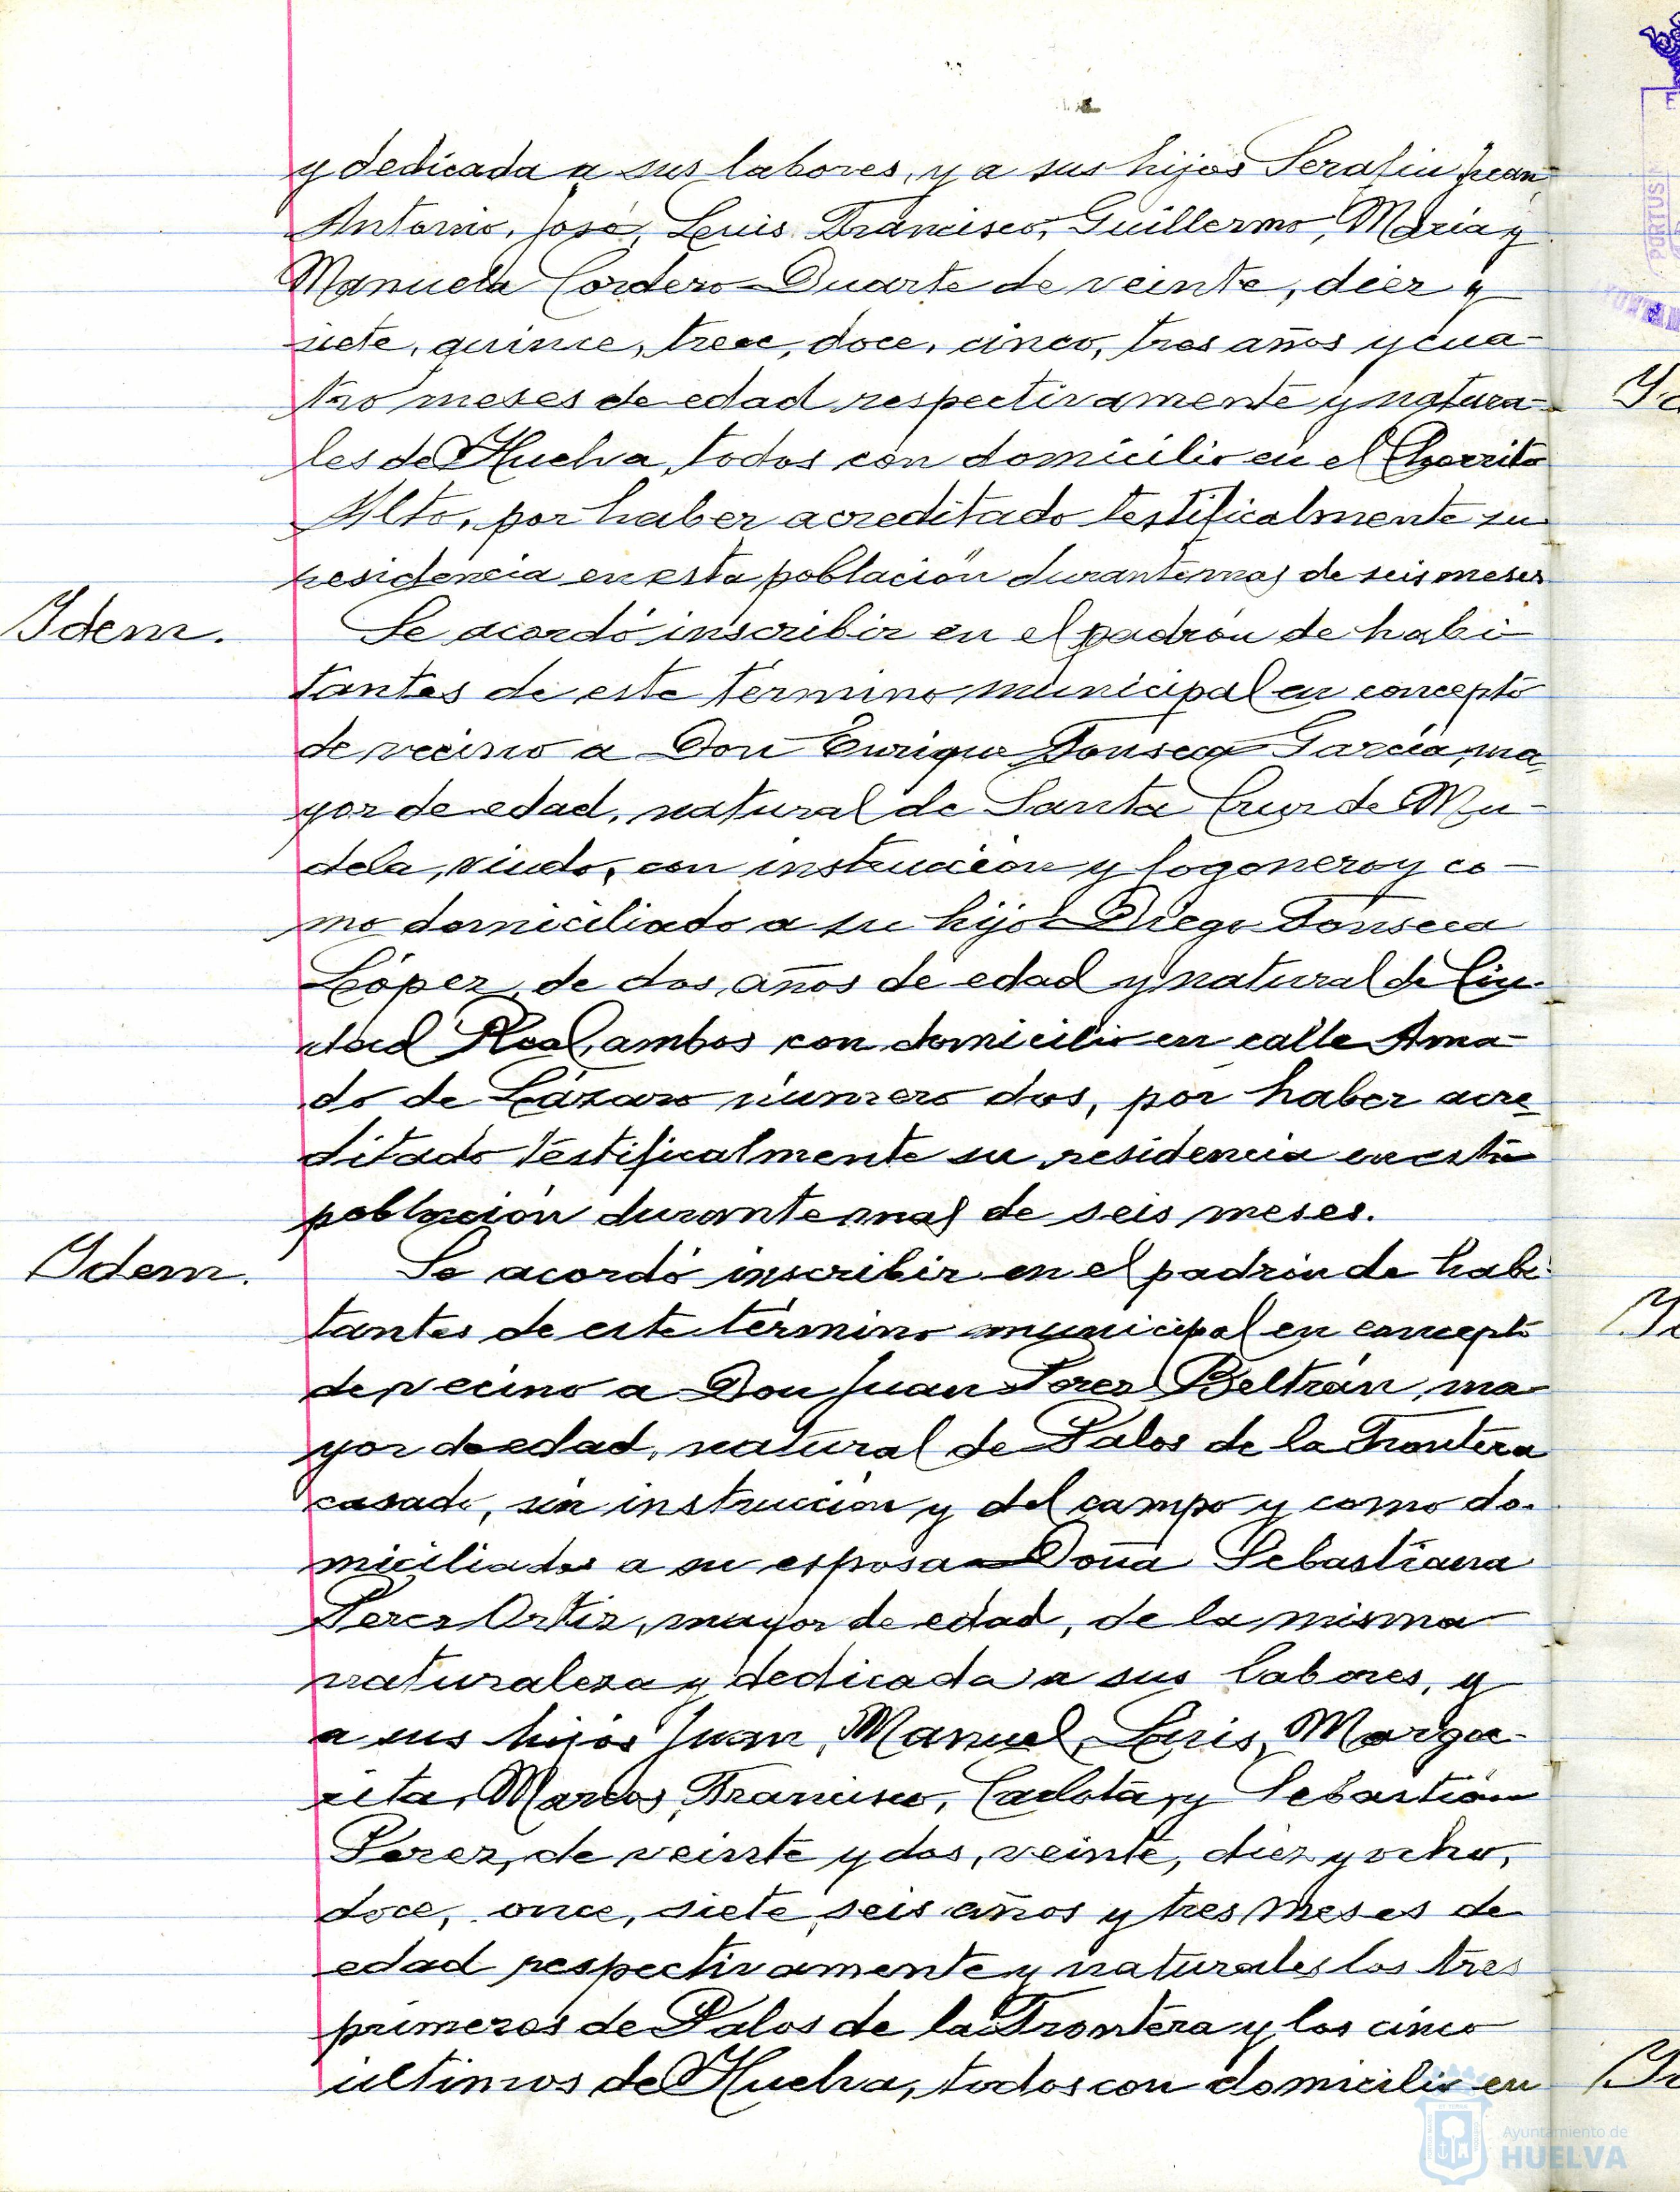 y dedicada a sus labores, y a sus hijos Serafin Juan
Antonio, José, Luis Francisco, Guillermo, Maria y
Manuela Cordero Duarte de veinte, diez y
siete, quince, trece, doce, cinco, tres años y cua-
tro meses de edad respectivamente y natura-
les de Huelva, todos con domicilio en el Chorrito
Alto, por haber acreditado testificalmente su
residencia en esta población durante mas de seis meses
Idem.
Se acordó inscribir en el padrón de habi-
tantes de este término municipal en concepto
de vecino a Don Enrique Fonseca García, ma-
yor de edad, natural de Santa Cruz de Mu-
dela, viudo, con instrucción y fogonero y co-
mo domiciliado a su hijo Diego Fonseca
López, de dos años de edad y natural de Ciu-
dad Real, ambos con domicilio en calle Ama-
do de Lázaro número dos, por haber acre-
ditado testificalmente su residencia en esta
población durante mas de seis meses.
Idem.
Se acordó inscribir en el padrón de habi-
tantes de este término municipal en concepto
de vecino a Don Juan Perez Beltrán, ma-
yor de edad, natural de Palos de la Frontera
casado, sin instrucción y del campo y como do-
miciliados a su esposa Doña Sebastiana
Perez Ortiz, mayor de edad, de la misma
naturaleza y dedicada a sus labores, y
a sus hijos Juan, Manuel, Luis, Marga-
rita, Marcos, Francisco, Carlota, y Sebastián
Perez, de veinte y dos, veinte, diez y ocho,
doce, once, siete, seis años y tres meses de
edad respectivamente y naturales los tres
primeros de Palos de la Frontera y los cinco
últimos de Huelva, todos con domicilio en
PORTUS M
Ayuntamiento de
HUELVA